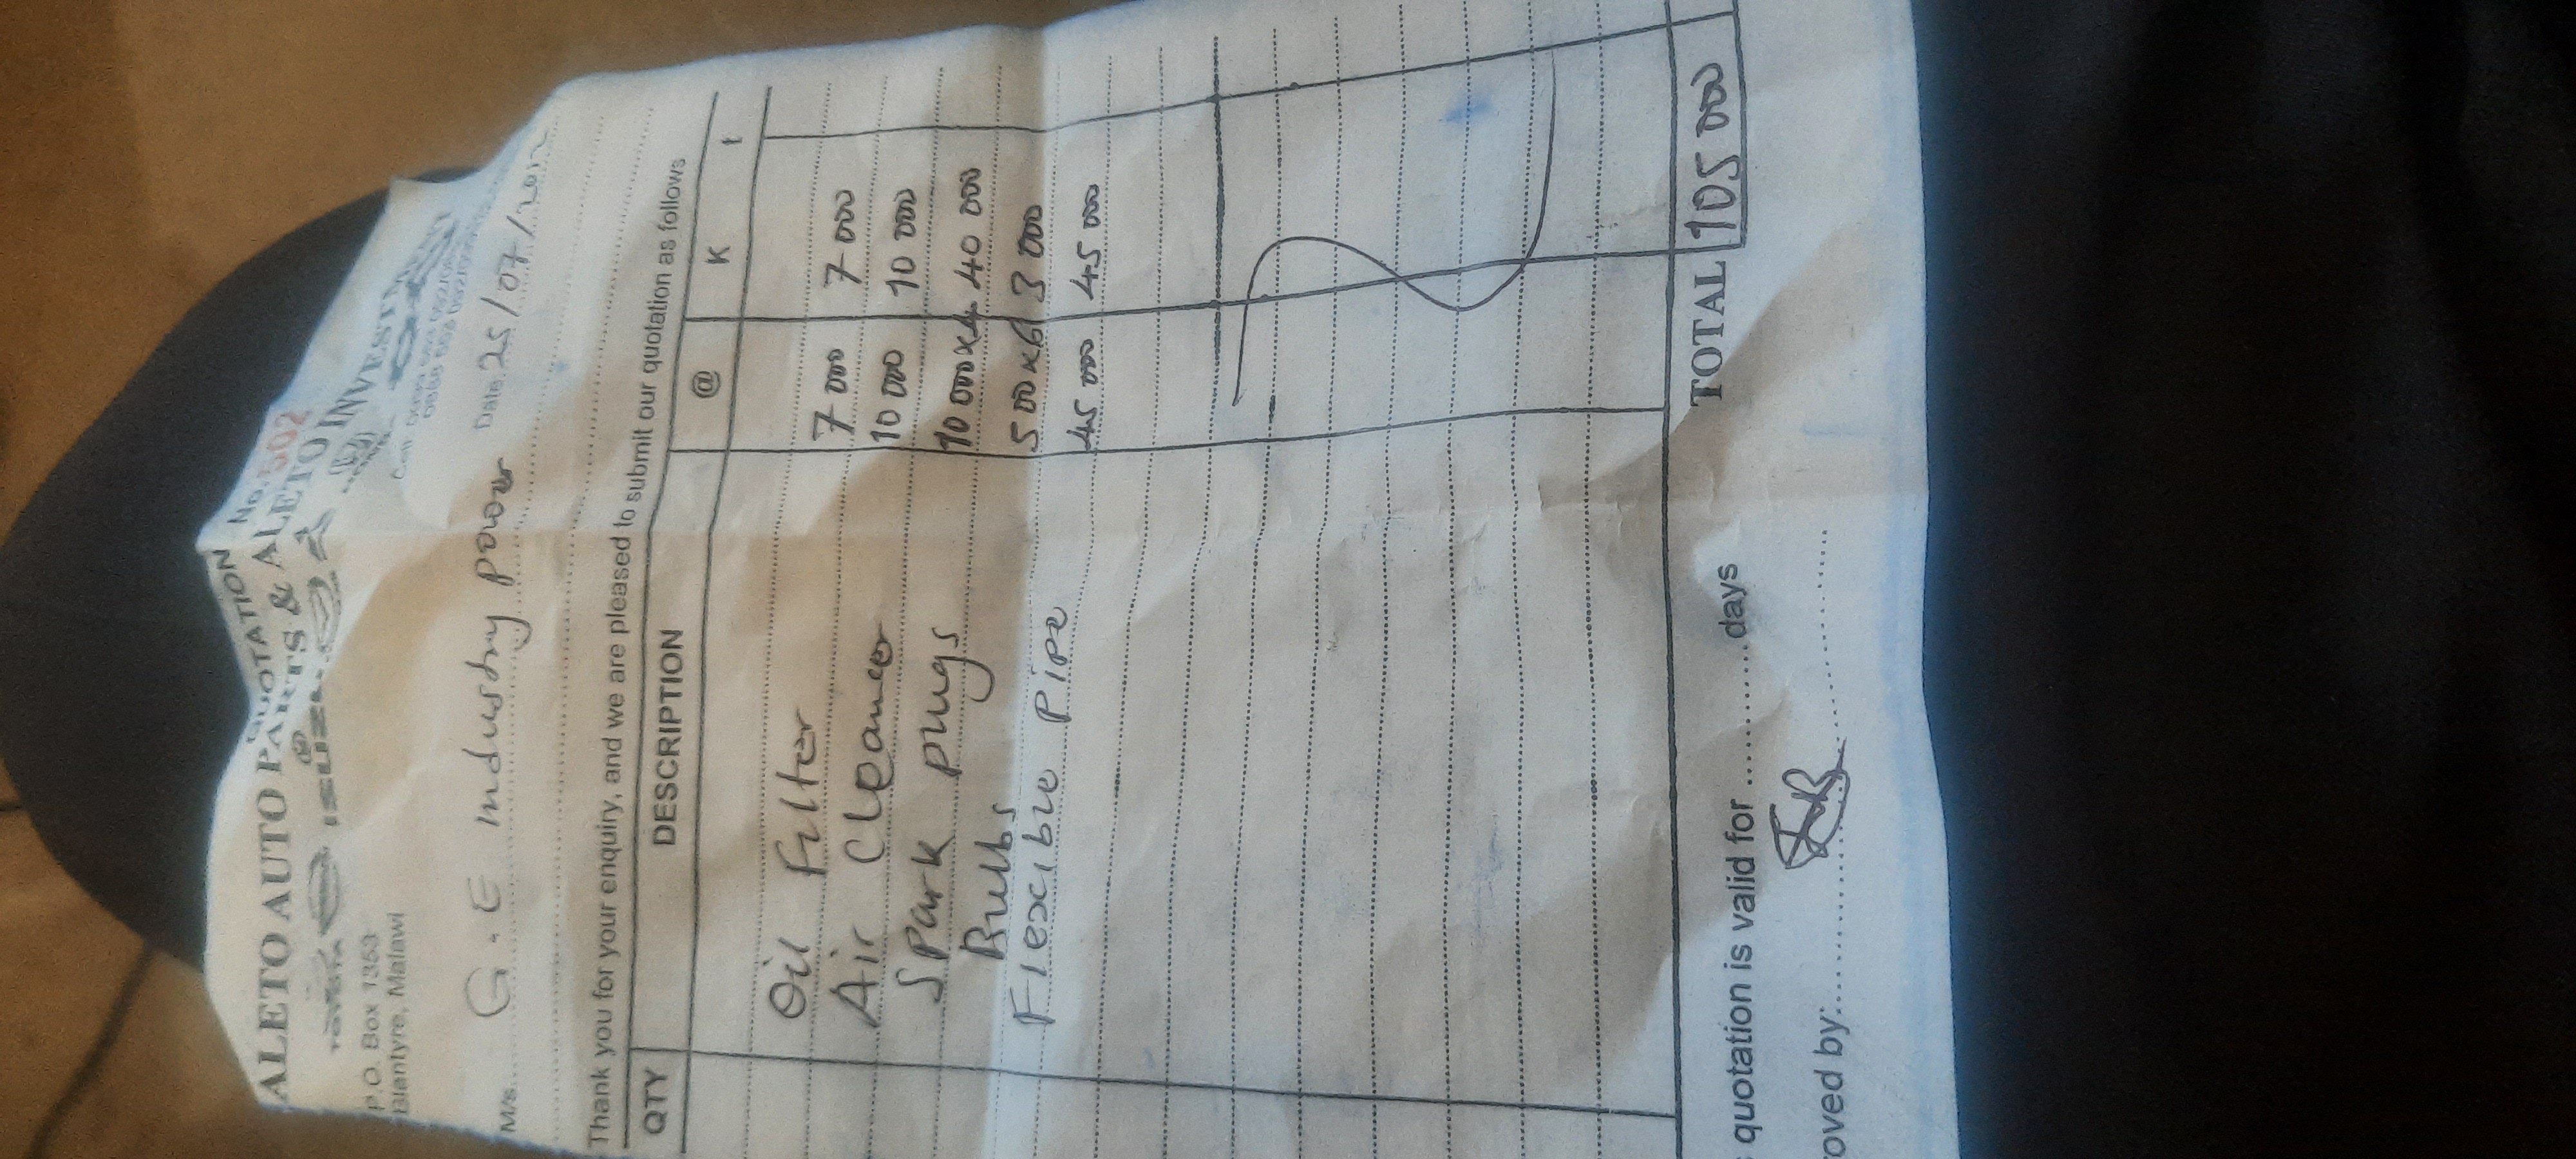 QUOTATION No. 502
ALETO AUTO PARTS & ALETO INVESTMENT
TOYOTA ISUZU
P.O. Box 1353
Blantyre, Malawi
Cell:
M/s. G.E Industry power Date 25/07/2012
Thank you for your enquiry, and we are pleased to submit our quotation as follows
QTY DESCRIPTION @ K t
Oil Filter 7 000 7 000
Air Cleaner 10 000 10 000
Spark plugs 10 000x4 40 000
Bulbs 500x6 3 000
Flexible pipe 45 000 45 000
TOTAL 105 000
quotation is valid for ............days
oved by: